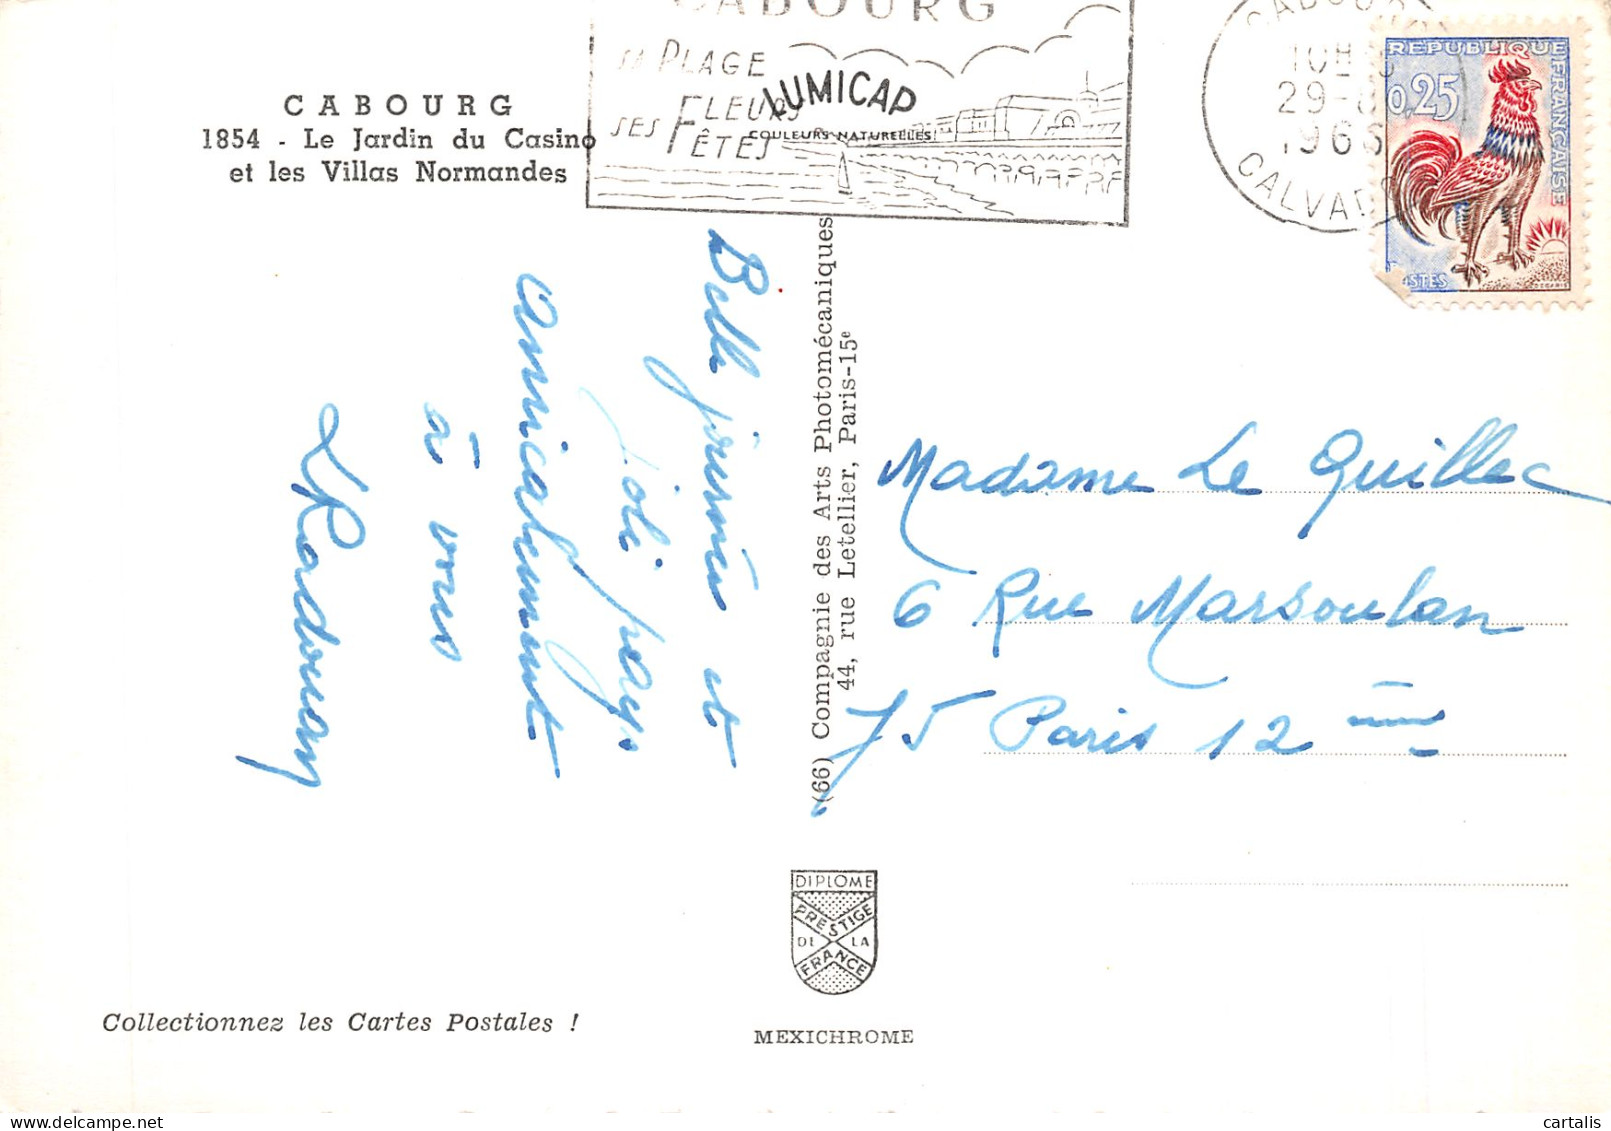 CABOURG
SA PLAGE
SES FLEURS
FÊTES
LUMICAP
COULEURS NATURELLES
CABOURG
10H
29-8
1966
CALVADOS
REPUBLIQUE FRANÇAISE
0,25
POSTES
CABOURG
1854 - Le Jardin du Casino
et les Villas Normandes
Belle journée et
joli pays
amicalement
à vous
Radouay
(66) Compagnie des Arts Photomécaniques
44, rue Letellier, Paris-15e
Madame Le Quillec
6 Rue Marsoulan
75 Paris 12 ème
DIPLOME
PRESTIGE
DE LA
FRANCE
Collectionnez les Cartes Postales !
MEXICHROME
cartalis